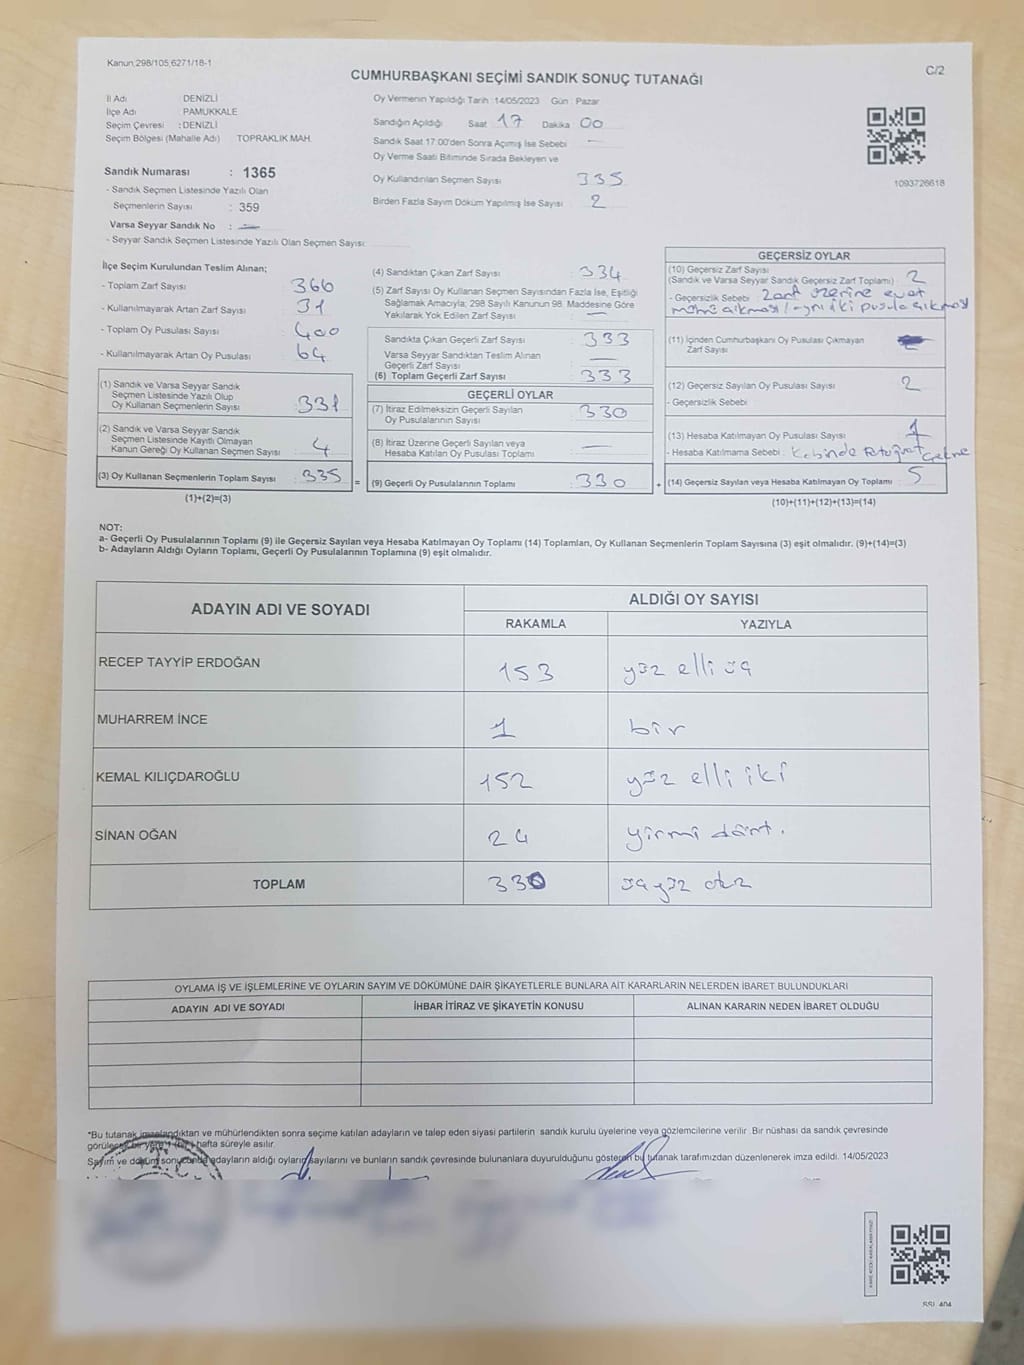 Kanun,298/105,6271/18-1
C/2
CUMHURBAŞKANI SEÇİMİ SANDIK SONUÇ TUTANAĞI
İl Adı DENİZLİ
İlçe Adı : PAMUKKALE
Seçim Çevresi : DENİZLİ
Seçim Bölgesi (Mahalle Adı) TOPRAKLIK MAH.
Sandık Numarası : 1365
- Sandık Seçmen Listesinde Yazılı Olan
Seçmenlerin Sayısı : 359
Varsa Seyyar Sandık No : —
- Seyyar Sandık Seçmen Listesinde Yazılı Olan Seçmen Sayısı:
Oy Vermenin Yapıldığı Tarih : 14/05/2023 Gün : Pazar
Sandığın Açıldığı Saat 17 Dakika 00
Sandık Saat 17.00'den Sonra Açılmış İse Sebebi —
Oy Verme Saati Bitiminde Sırada Bekleyen ve
Oy Kullandırılan Seçmen Sayısı 335
Birden Fazla Sayım Döküm Yapılmış İse Sayısı : 2
1093726618
İlçe Seçim Kurulundan Teslim Alınan;
- Toplam Zarf Sayısı : 366
- Kullanılmayarak Artan Zarf Sayısı : 31
- Toplam Oy Pusulası Sayısı : 400
- Kullanılmayarak Artan Oy Pusulası : 64
(1) Sandık ve Varsa Seyyar Sandık
Seçmen Listesinde Yazılı Olup
Oy Kullanan Seçmenlerin Sayısı : 331
(2) Sandık ve Varsa Seyyar Sandık
Seçmen Listesinde Kayıtlı Olmayan
Kanun Gereği Oy Kullanan Seçmen Sayısı : 4
(3) Oy Kullanan Seçmenlerin Toplam Sayısı : 335
(1)+(2)=(3)
(4) Sandıktan Çıkan Zarf Sayısı : 334
(5) Zarf Sayısı Oy Kullanan Seçmen Sayısından Fazla İse, Eşitliği
Sağlamak Amacıyla; 298 Sayılı Kanunun 98. Maddesine Göre
Yakılarak Yok Edilen Zarf Sayısı : —
Sandıkta Çıkan Geçerli Zarf Sayısı : 333
Varsa Seyyar Sandıktan Teslim Alınan
Geçerli Zarf Sayısı : —
(6) Toplam Geçerli Zarf Sayısı : 333
GEÇERLİ OYLAR
(7) İtiraz Edilmeksizin Geçerli Sayılan
Oy Pusulalarının Sayısı : 330
(8) İtiraz Üzerine Geçerli Sayılan veya
Hesaba Katılan Oy Pusulası Toplamı : —
= (9) Geçerli Oy Pusulalarının Toplamı : 330
GEÇERSİZ OYLAR
(10) Geçersiz Zarf Sayısı
(Sandık ve Varsa Seyyar Sandık Geçersiz Zarf Toplamı) : 2
- Geçersizlik Sebebi : Zarf üzerine evet
mührü çıkması / ayrı iki pusula çıkması
(11) İçinden Cumhurbaşkanı Oy Pusulası Çıkmayan
Zarf Sayısı
(12) Geçersiz Sayılan Oy Pusulası Sayısı : 2
- Geçersizlik Sebebi
(13) Hesaba Katılmayan Oy Pusulası Sayısı : 1
- Hesaba Katılmama Sebebi : Kabinde fotoğraf çekme
+ (14) Geçersiz Sayılan veya Hesaba Katılmayan Oy Toplamı : 5
(10)+(11)+(12)+(13)=(14)
NOT:
a- Geçerli Oy Pusulalarının Toplamı (9) ile Geçersiz Sayılan veya Hesaba Katılmayan Oy Toplamı (14) Toplamları, Oy Kullanan Seçmenlerin Toplam Sayısına (3) eşit olmalıdır. (9)+(14)=(3)
b- Adayların Aldığı Oyların Toplamı, Geçerli Oy Pusulalarının Toplamına (9) eşit olmalıdır.
ADAYIN ADI VE SOYADI ALDIĞI OY SAYISI
RAKAMLA YAZIYLA
RECEP TAYYİP ERDOĞAN 153 yüz elli üç
MUHARREM İNCE 1 bir
KEMAL KILIÇDAROĞLU 152 yüz elli iki
SİNAN OĞAN 24 yirmi dört.
TOPLAM 330 üçyüz otuz
OYLAMA İŞ VE İŞLEMLERİNE VE OYLARIN SAYIM VE DÖKÜMÜNE DAİR ŞİKAYETLERLE BUNLARA AİT KARARLARIN NELERDEN İBARET BULUNDUKLARI
ADAYIN ADI VE SOYADI İHBAR İTİRAZ VE ŞİKAYETİN KONUSU ALINAN KARARIN NEDEN İBARET OLDUĞU
*Bu tutanak imzalandıktan ve mühürlendikten sonra seçime katılan adayların ve talep eden siyasi partilerin sandık kurulu üyelerine veya gözlemcilerine verilir. Bir nüshası da sandık çevresinde
görülecek bir yere 1 (bir) hafta süreyle asılır.
Sayım ve döküm sonucunda adayların aldığı oyların sayılarını ve bunların sandık çevresinde bulunanlara duyurulduğunu gösteren bu tutanak tarafımızdan düzenlenerek imza edildi. 14/05/2023